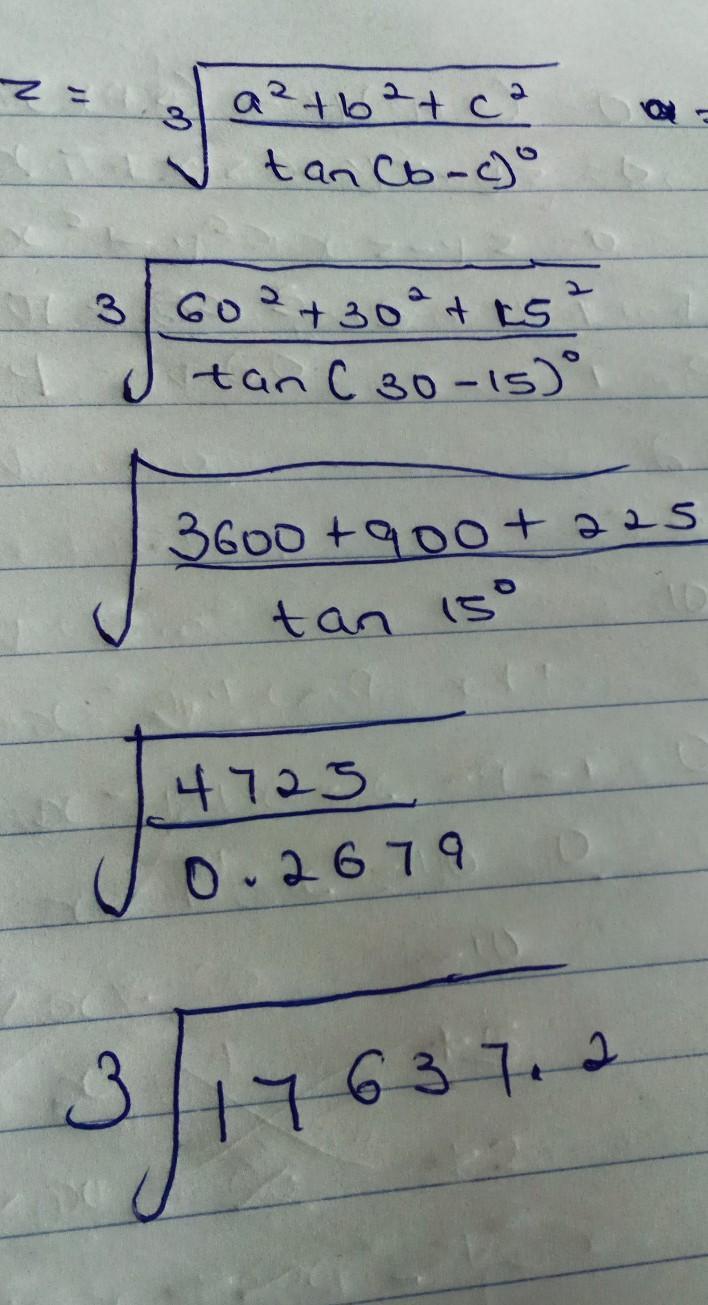 z = ∛((a² + b² + c²) / (tan(b - c)°)) a =
∛((60² + 30² + 15²) / (tan(30 - 15)°))
√((3600 + 900 + 225) / (tan 15°))
√(4725 / 0.2679)
∛(17637.2)